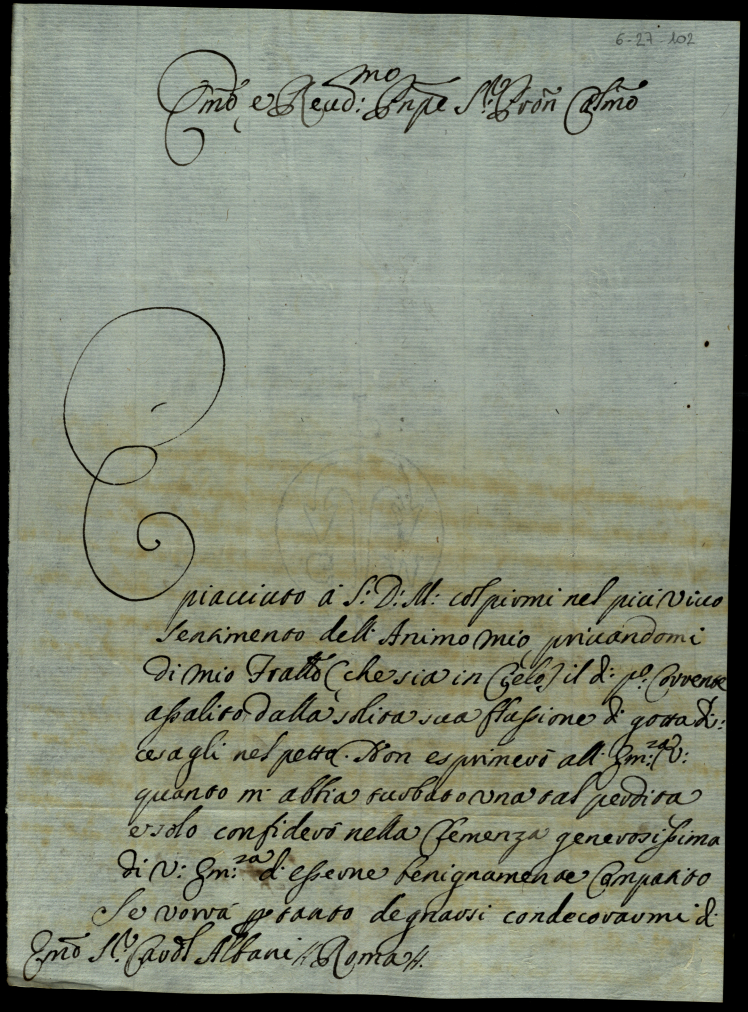 6-27-102
Emõ e Reud:mo Pnpe Sr Pron Colmõ
E piacciuto à S: D: M: colpirmi nel più viuo
sentimento dell'Animo mio priuandomi
di mio Fratto (che sia in Cielo) il dì po: Corrente
assalito dalla solita sua flussione di gotta di:
cesagli nel petto. Non esprimerò all' Em:za V:
quanto m' abbia turbato una tal perdita
e solo confiderò nella Clemenza generosissima
di V: Em:za d' esserne benignamente Compatito
Se vorrà ptanto degnarsi condecorarmi di
Emõ Sr Cardl Albani // Roma //.